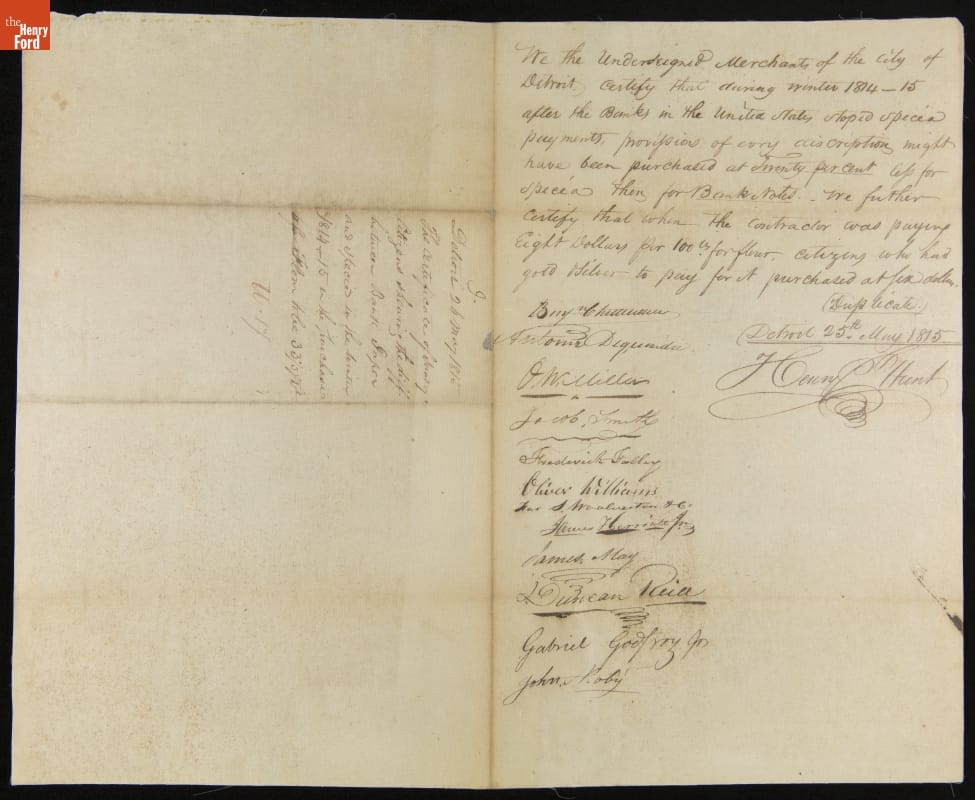 the
Henry
Ford
We the Undersigned Merchants of the City of
Detroit, Certify that during winter 1814–15
after the Banks in the United States stoped specea
payments, provissions of evry discription might
have been purchased at Twenty per cent less for
specea then for Bank Notes. We further
Certify that when the contractor was paying
Eight Dollars per 100 lb for flour. Citizens who had
gold & silver to pay for it purchased at six dollars.
(Duplicate)
Detroit 25th May 1815
Henry Hunt
Antoine Dequindre
O. W. Miller
Jacob Smith
Frederick Falley
Oliver Williams
For S. & Co.
James Jr
James May
Duncan Reid
Gabriel Godfroy Jr
John
Detroit 26 May 1815
The Certificates of Sundry
Citizens showing the diff.
between Bank Paper
and specea in the winter
1814–15 in the purchase